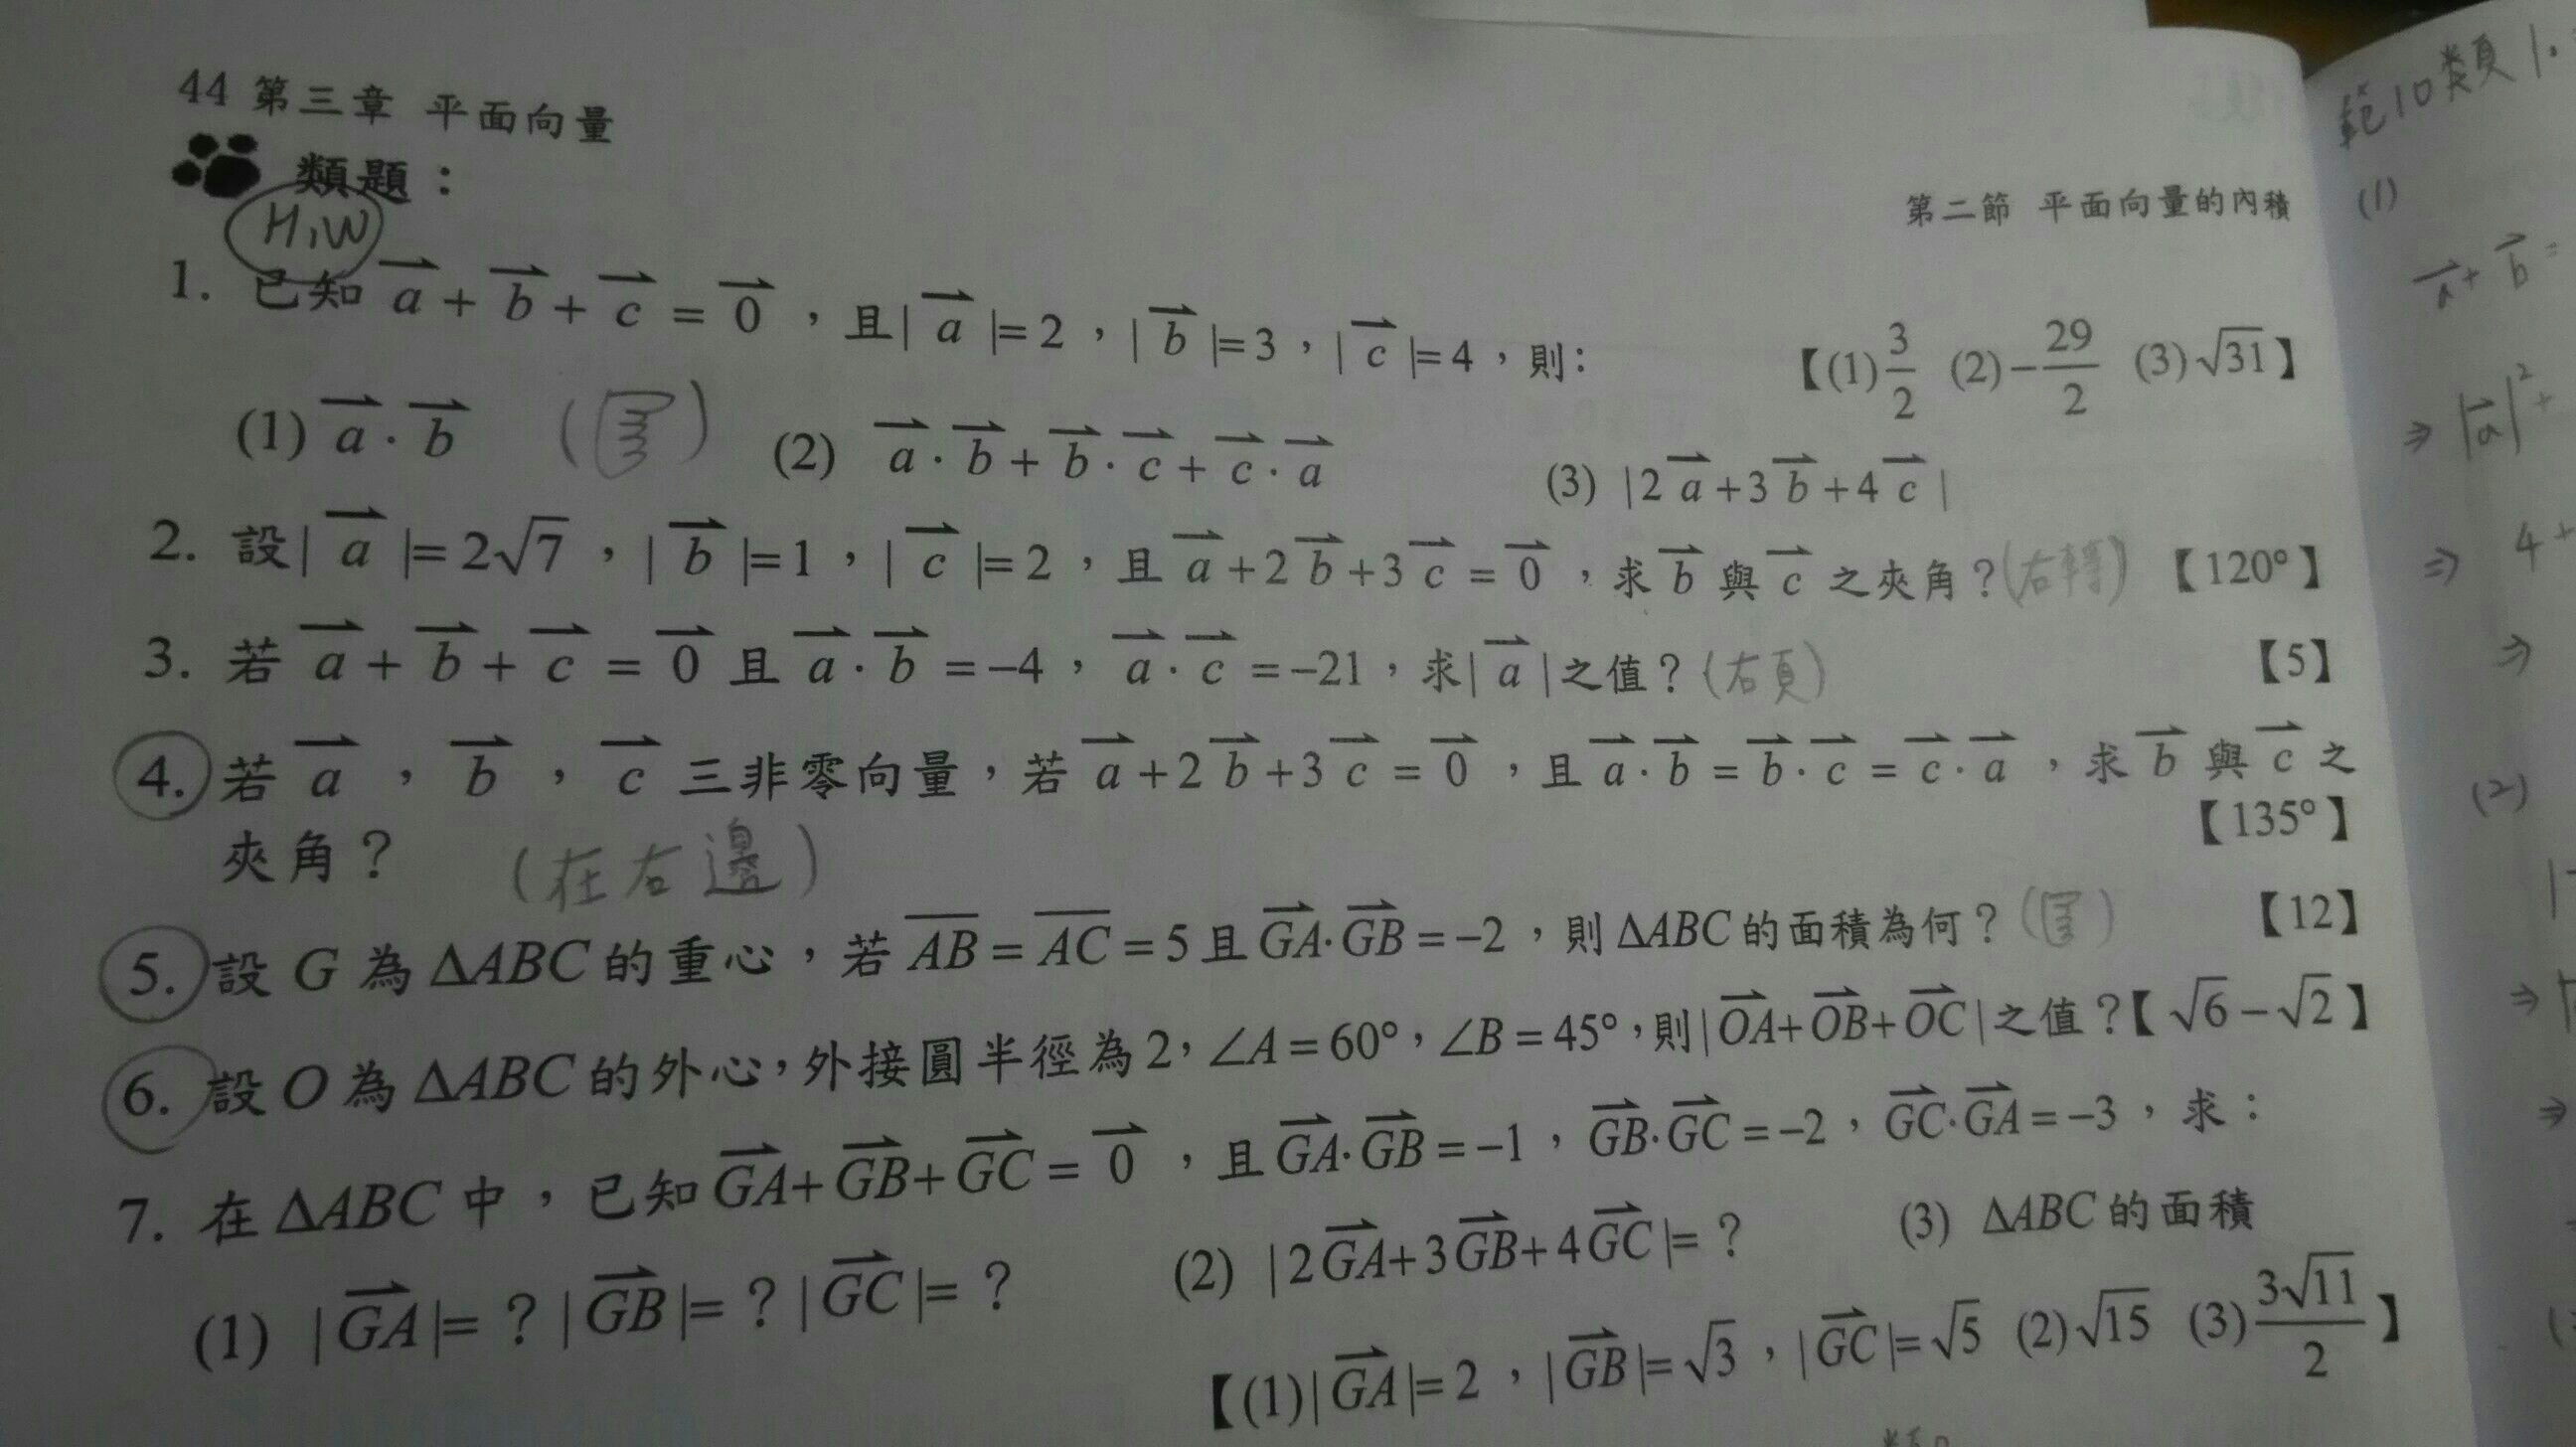 44 第三章 平面向量
類題：
H,W
第二節 平面向量的內積
1. 已知 $\overrightarrow{a}+\overrightarrow{b}+\overrightarrow{c}=\overrightarrow{0}$，且$|\overrightarrow{a}|=2$，$|\overrightarrow{b}|=3$，$|\overrightarrow{c}|=4$，則：
【(1)$\frac{3}{2}$ (2)$-\frac{29}{2}$ (3)$\sqrt{31}$】
(1) $\overrightarrow{a}\cdot\overrightarrow{b}$ (2) $\overrightarrow{a}\cdot\overrightarrow{b}+\overrightarrow{b}\cdot\overrightarrow{c}+\overrightarrow{c}\cdot\overrightarrow{a}$ (3) $|2\overrightarrow{a}+3\overrightarrow{b}+4\overrightarrow{c}|$
2. 設$|\overrightarrow{a}|=2\sqrt{7}$，$|\overrightarrow{b}|=1$，$|\overrightarrow{c}|=2$，且 $\overrightarrow{a}+2\overrightarrow{b}+3\overrightarrow{c}=\overrightarrow{0}$，求 $\overrightarrow{b}$ 與 $\overrightarrow{c}$ 之夾角？【120°】
3. 若 $\overrightarrow{a}+\overrightarrow{b}+\overrightarrow{c}=\overrightarrow{0}$ 且 $\overrightarrow{a}\cdot\overrightarrow{b}=-4$，$\overrightarrow{a}\cdot\overrightarrow{c}=-21$，求$|\overrightarrow{a}|$之值？(右頁) 【5】
4. 若 $\overrightarrow{a}$，$\overrightarrow{b}$，$\overrightarrow{c}$ 三非零向量，若 $\overrightarrow{a}+2\overrightarrow{b}+3\overrightarrow{c}=\overrightarrow{0}$，且 $\overrightarrow{a}\cdot\overrightarrow{b}=\overrightarrow{b}\cdot\overrightarrow{c}=\overrightarrow{c}\cdot\overrightarrow{a}$，求 $\overrightarrow{b}$ 與 $\overrightarrow{c}$ 之
夾角？ (在右邊) 【135°】
5. 設 G 為 ΔABC 的重心，若 $\overline{AB}=\overline{AC}=5$ 且 $\overrightarrow{GA}\cdot\overrightarrow{GB}=-2$，則 ΔABC 的面積為何？ 【12】
6. 設 O 為 ΔABC 的外心，外接圓半徑為 2，∠A=60°，∠B=45°，則$|\overrightarrow{OA}+\overrightarrow{OB}+\overrightarrow{OC}|$之值？【$\sqrt{6}-\sqrt{2}$】
7. 在 ΔABC 中，已知 $\overrightarrow{GA}+\overrightarrow{GB}+\overrightarrow{GC}=\overrightarrow{0}$，且 $\overrightarrow{GA}\cdot\overrightarrow{GB}=-1$，$\overrightarrow{GB}\cdot\overrightarrow{GC}=-2$，$\overrightarrow{GC}\cdot\overrightarrow{GA}=-3$，求：
(1) $|\overrightarrow{GA}|=$？$|\overrightarrow{GB}|=$？$|\overrightarrow{GC}|=$？ (2) $|2\overrightarrow{GA}+3\overrightarrow{GB}+4\overrightarrow{GC}|=$？ (3) ΔABC 的面積
【(1)$|\overrightarrow{GA}|=2$，$|\overrightarrow{GB}|=\sqrt{3}$，$|\overrightarrow{GC}|=\sqrt{5}$ (2)$\sqrt{15}$ (3)$\frac{3\sqrt{11}}{2}$】
範10類 1.
(1)
$\overrightarrow{a}+\overrightarrow{b}=$
⇒ $|\overrightarrow{a}|^2+$
⇒ 4+
⇒
(2)
⇒
⇒